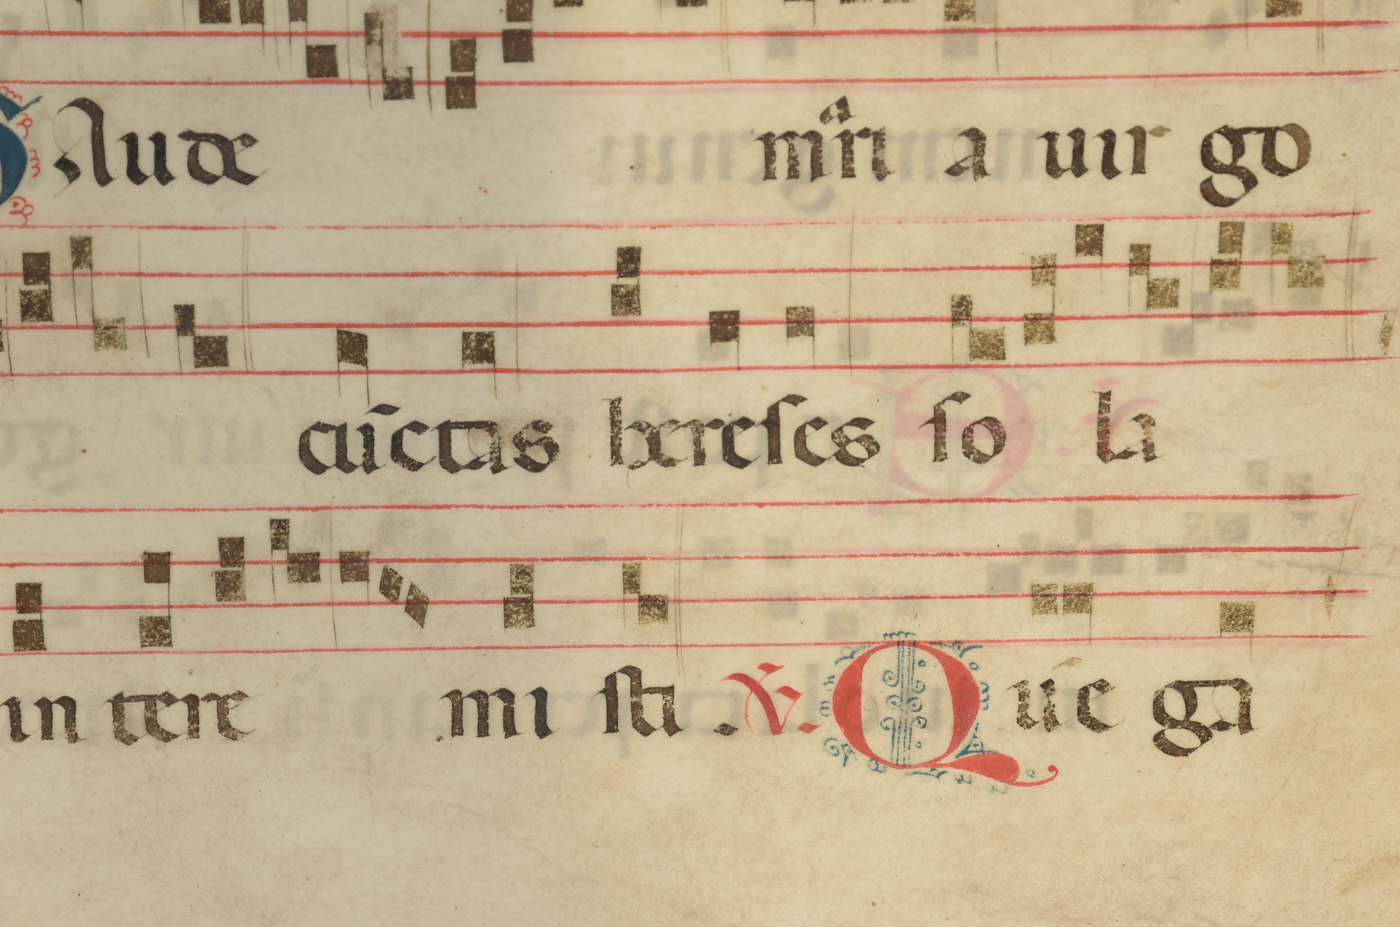 GAude mͣri a uir go
cūctas hereses so la
in tere mi sti . ℣. Que ga